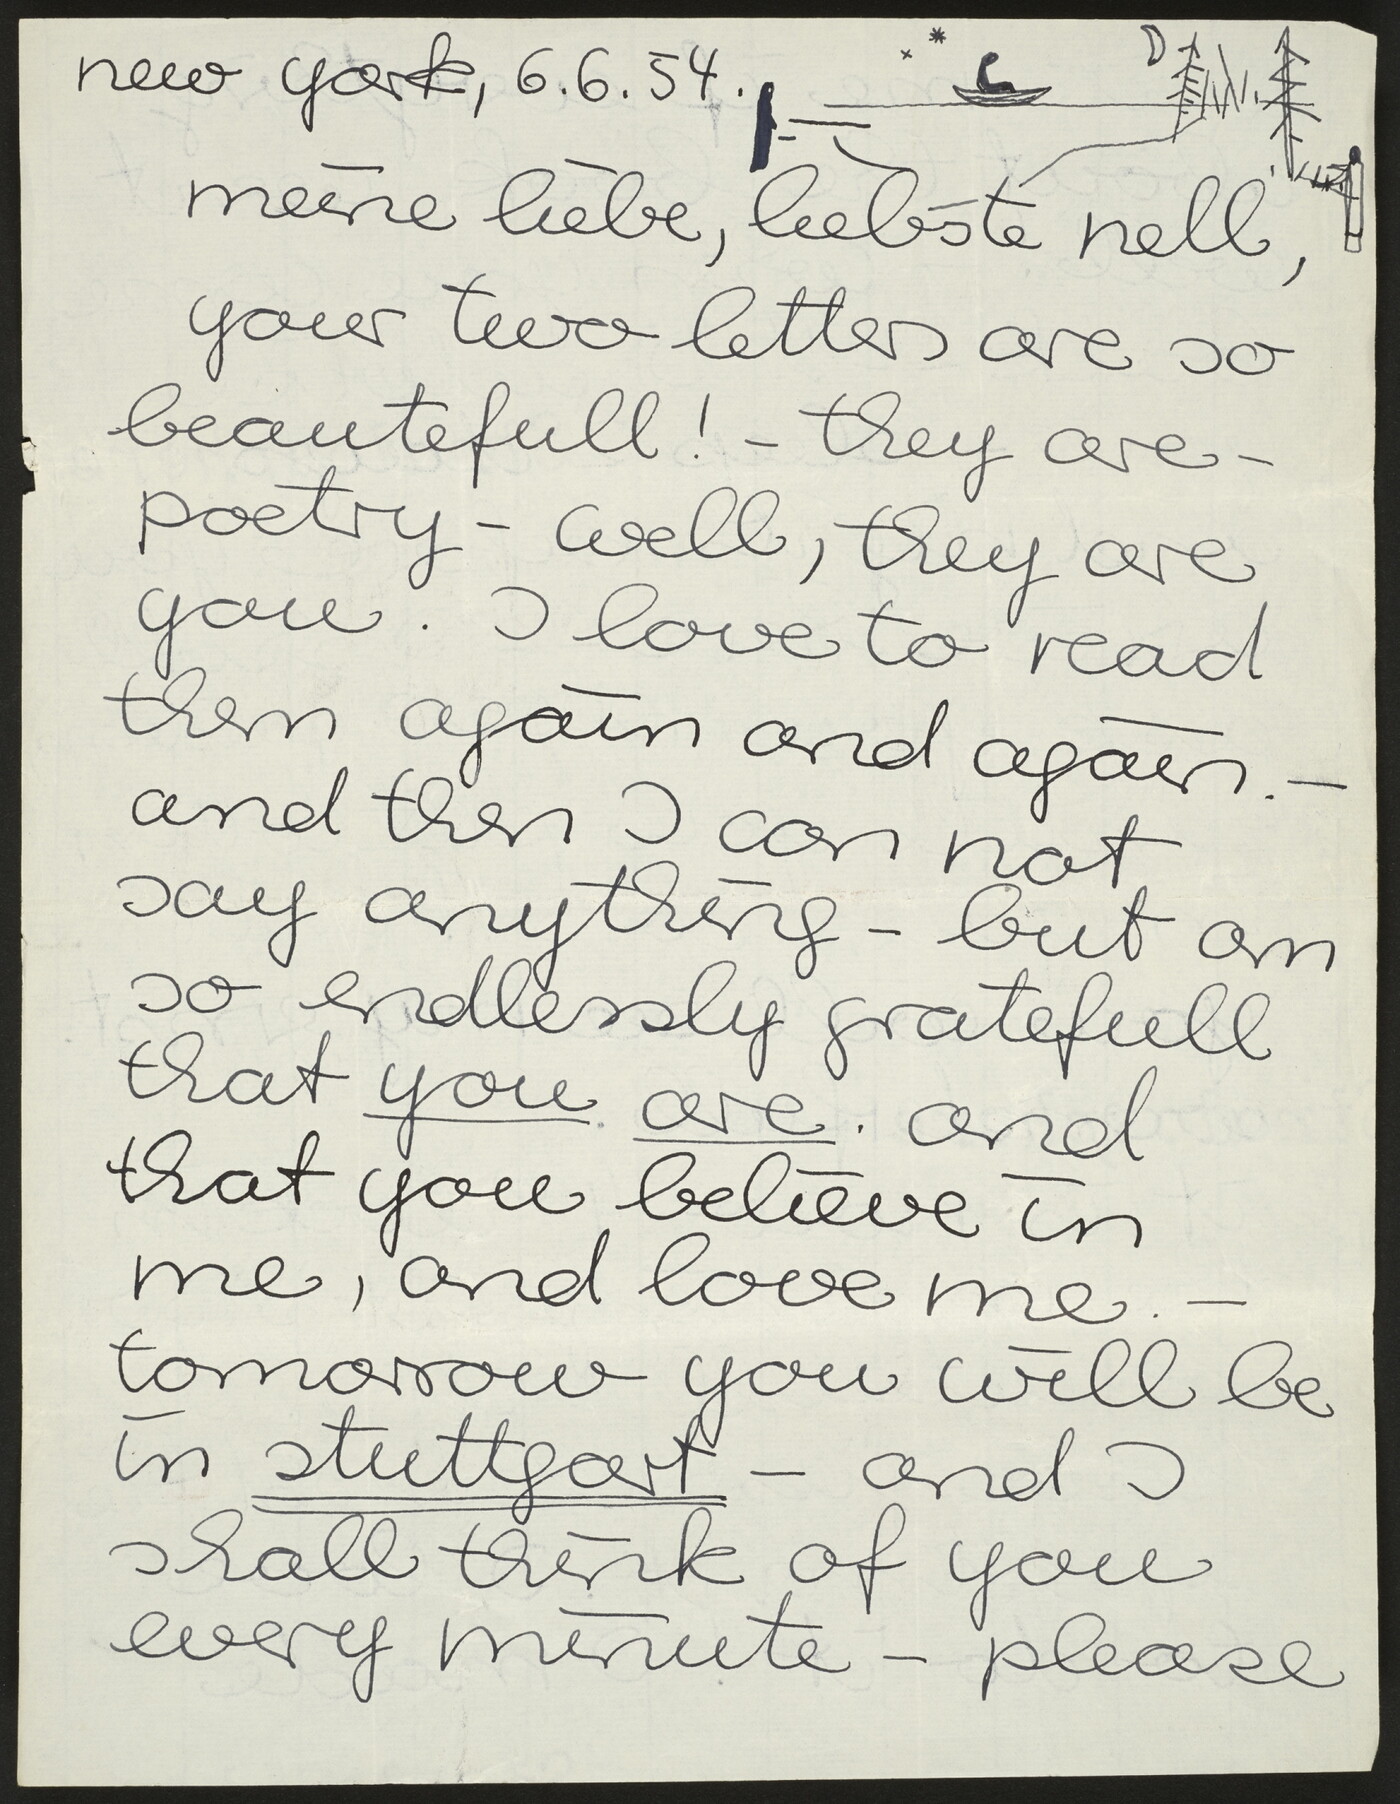 new york, 6.6.54.
meine liebe, liebste nell,
your two letters are so
beautefull! – they are –
poetry – well, they are
you. I love to read
them again and again. –
and then I can not
say anything – but am
so endlessly gratefull
that you are. and
that you believe in
me, and love me. –
tomorrow you will be
in stuttgart – and I
shall think of you
every minute – please